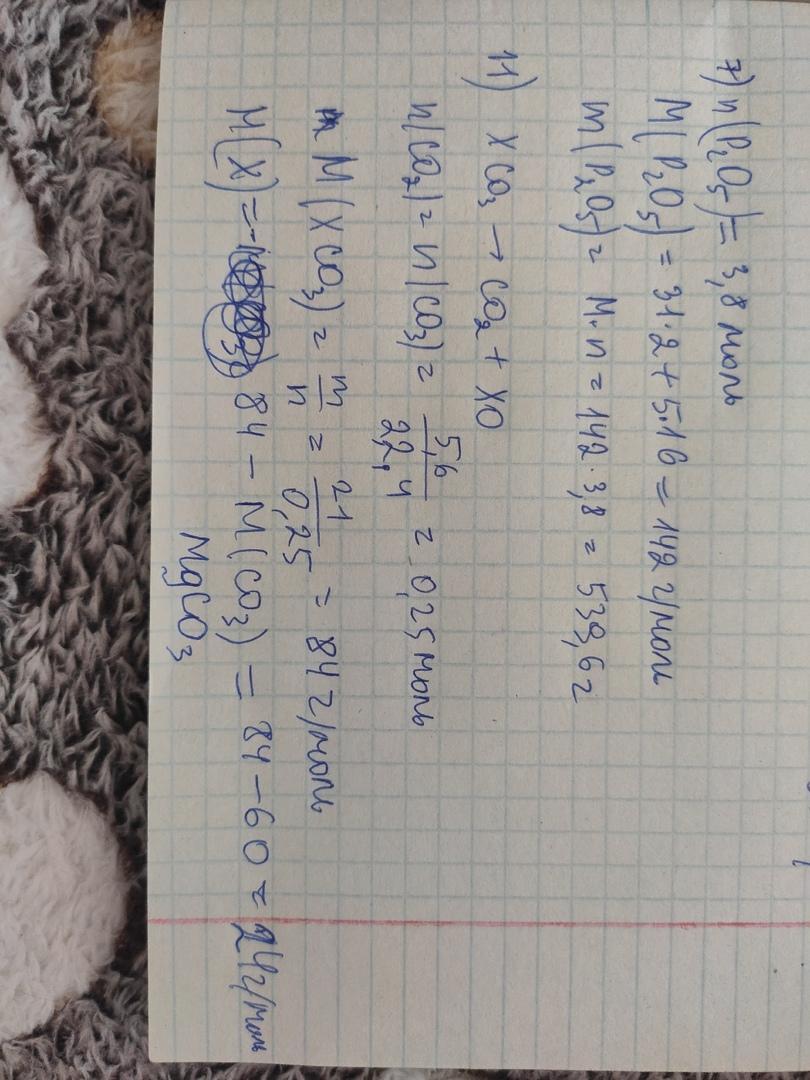 7) n(P₂O₅) = 3,8 моль
M(P₂O₅) = 31·2 + 5·16 = 142 г/моль
m(P₂O₅) = M·n = 142·3,8 = 539,6 г
11) XCO₃ → CO₂ + XO
n(CO₂) = n(CO₃) = 5,6/22,4 = 0,25 моль
M(XCO₃) = m/n = 21/0,25 = 84 г/моль
M(X) = 84 – M(CO₃) = 84 – 60 = 24 г/моль
MgCO₃